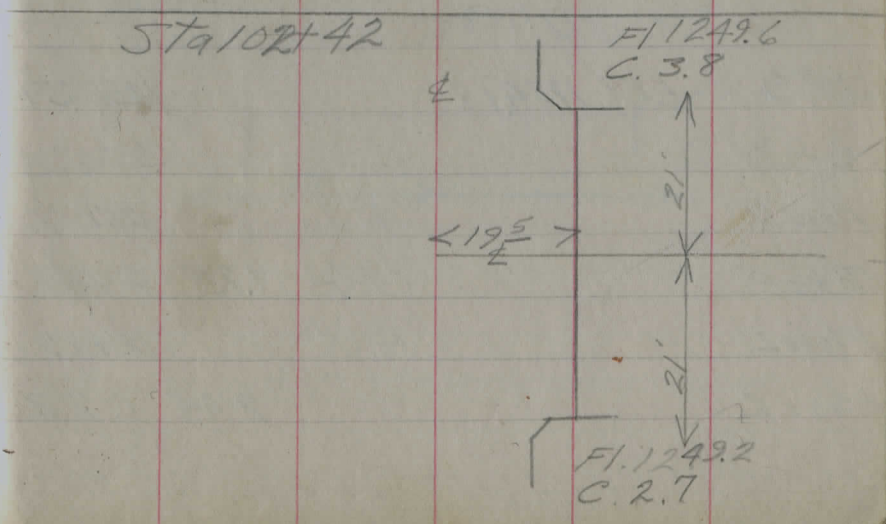 Sta 102+42
Fl 1249.6
C. 3.8
℄
21'
<19 5>
℄
21'
Fl. 1249.2
C. 2.7